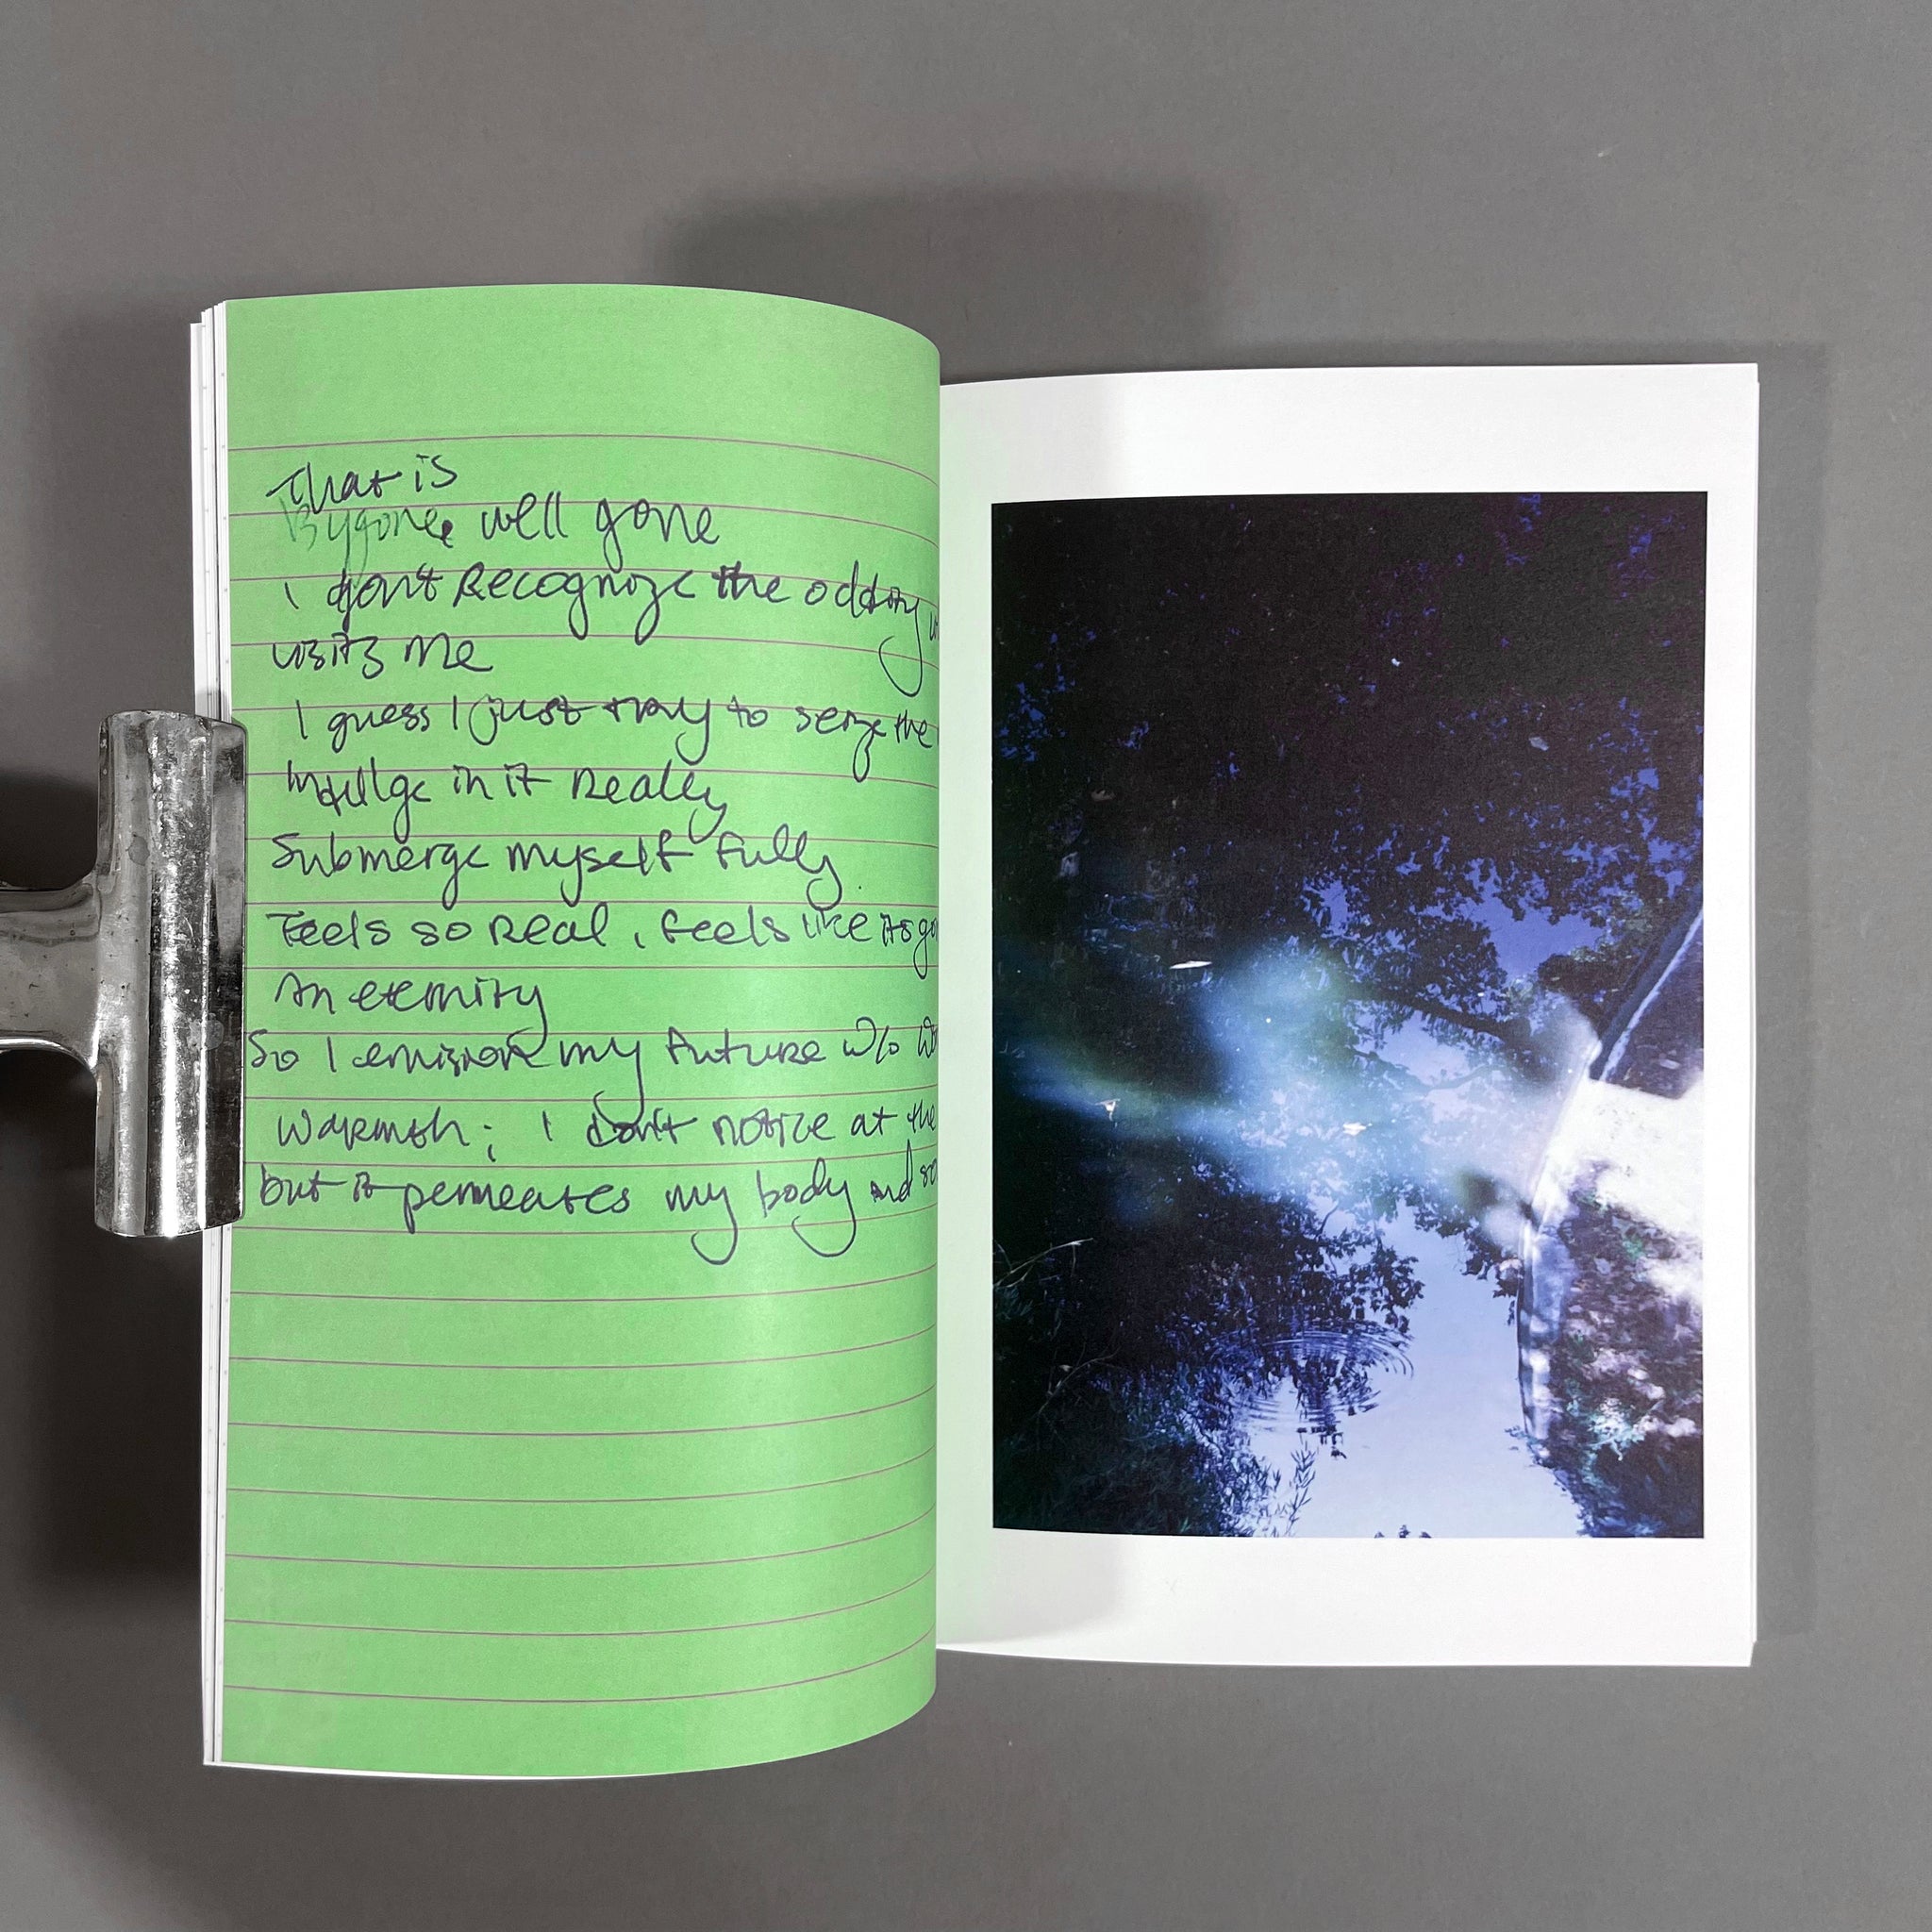 That is
Bygone, well gone
I don't Recognize the oddity
visits me
I guess I just try to seize the
Indulge in it Really
Submerge myself fully.
Feels so Real, feels like its
An eternity
So I envision my future w/o
Warmth; I don't notice at the
but it permeates my body and